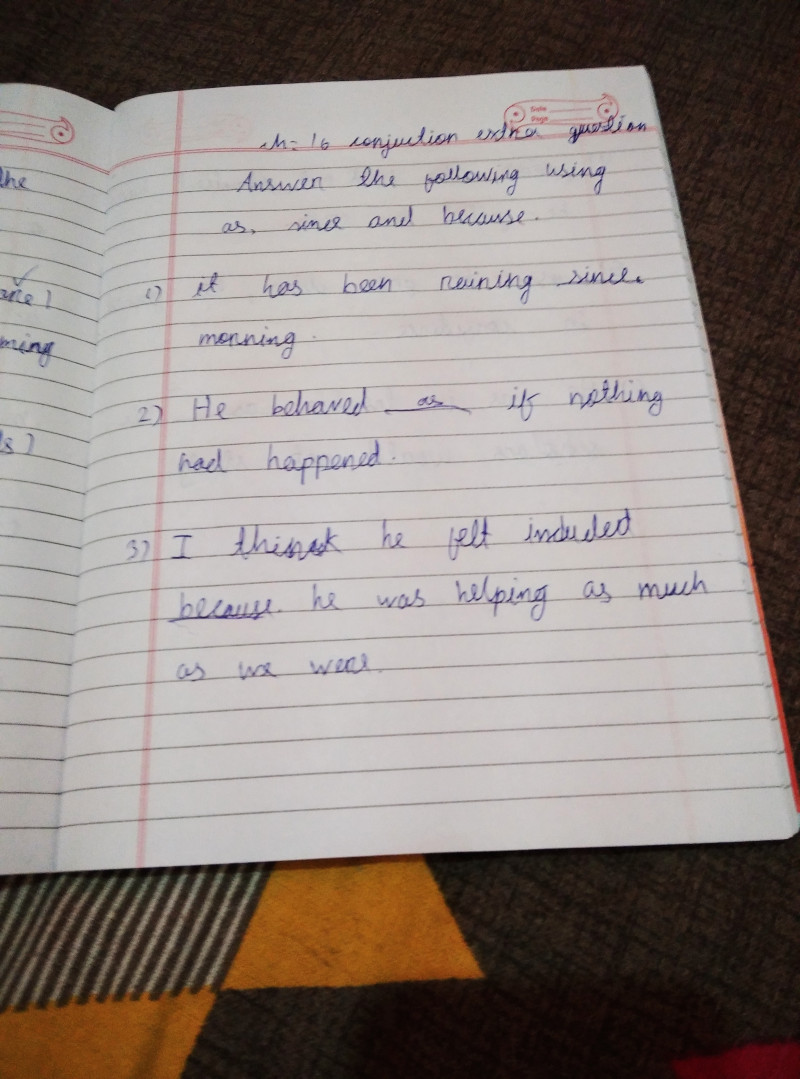 the
are)
ming
ls)
Date
Page
ch= 16 conjuction extra question
Answer the following using
as, since and because.
1) it has been raining since
morning.
2) He behaved as if nothing
had happened.
3) I think he felt included
because he was helping as much
as we were.